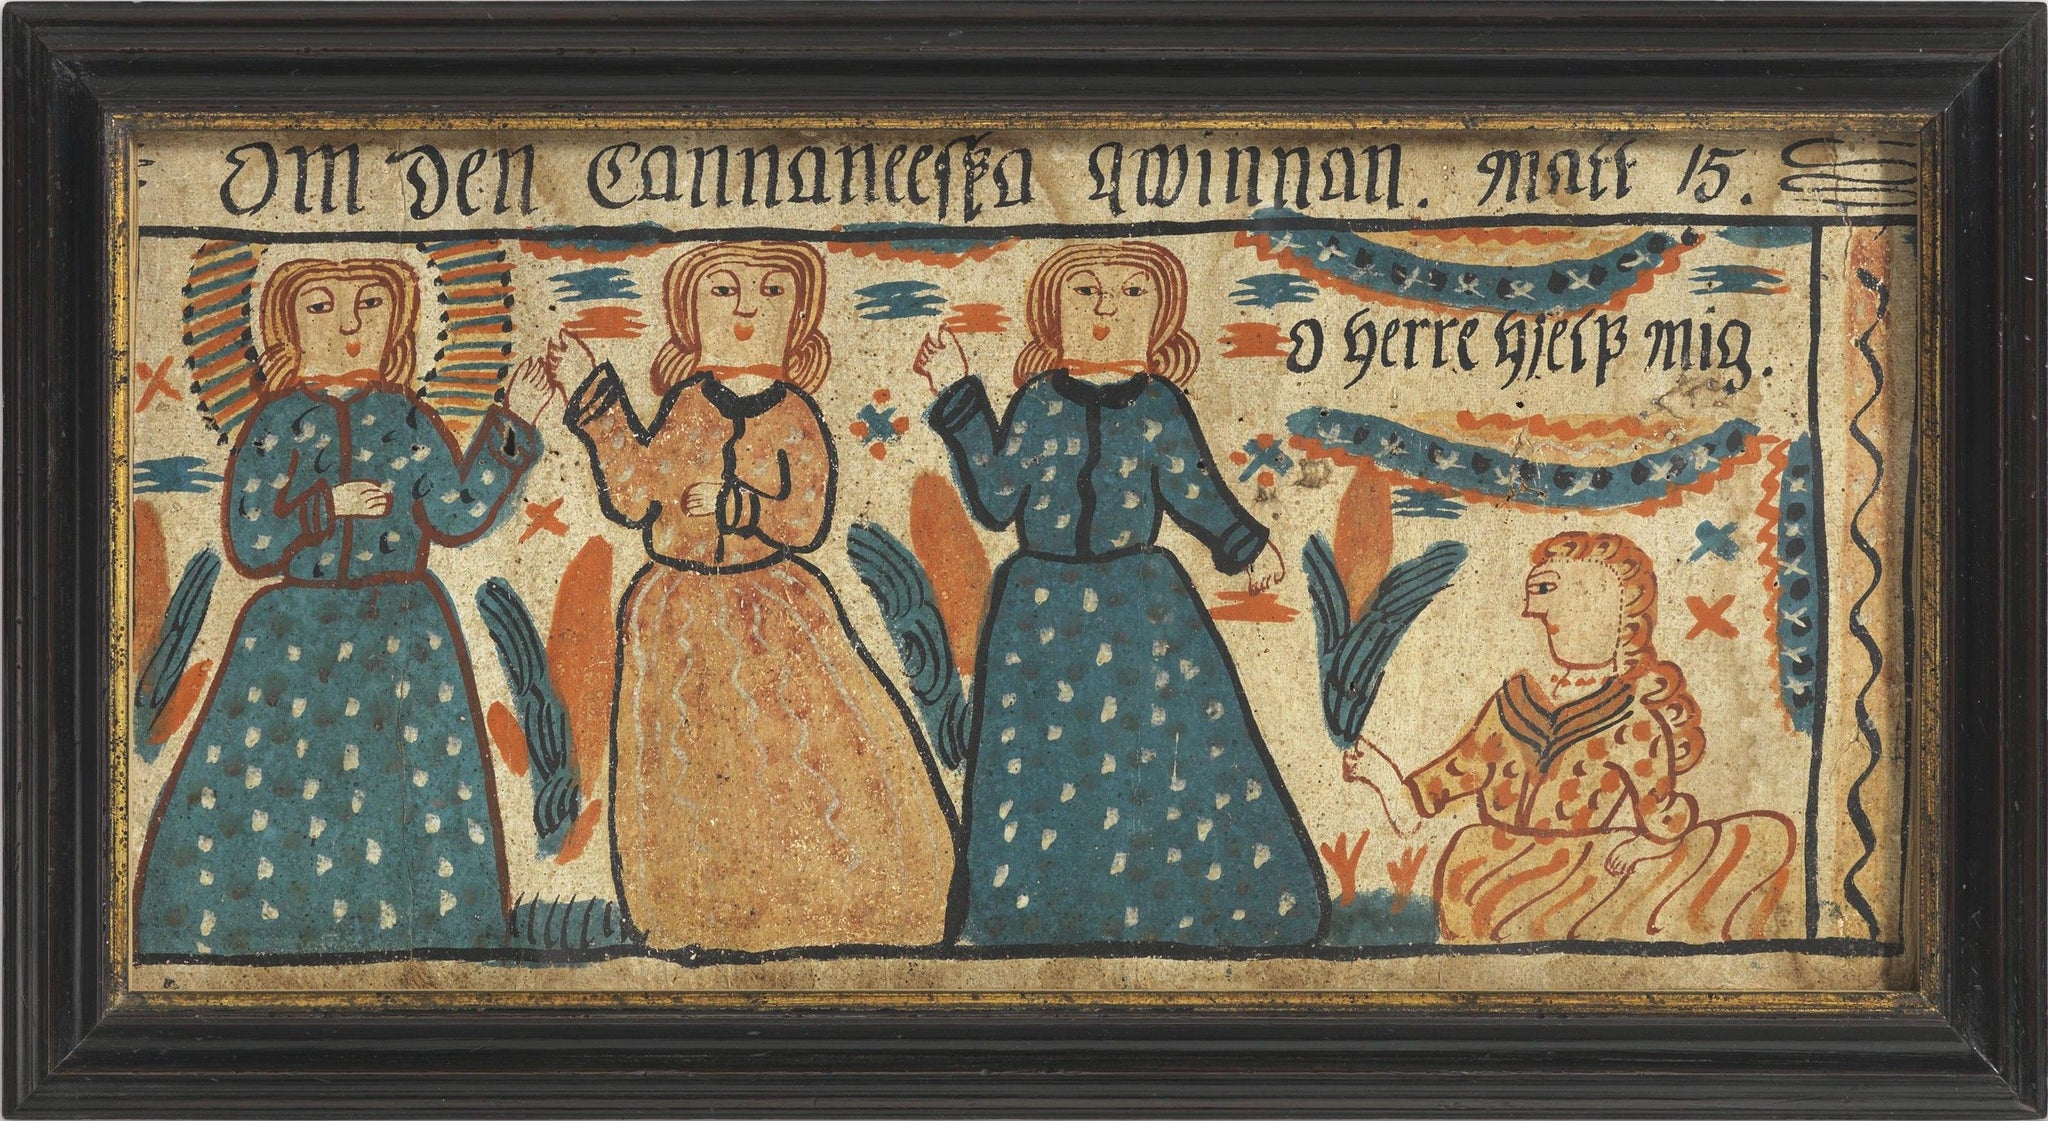 Om den Cannaneeska qwinnan. Matt 15.
O herre hjelp mig.